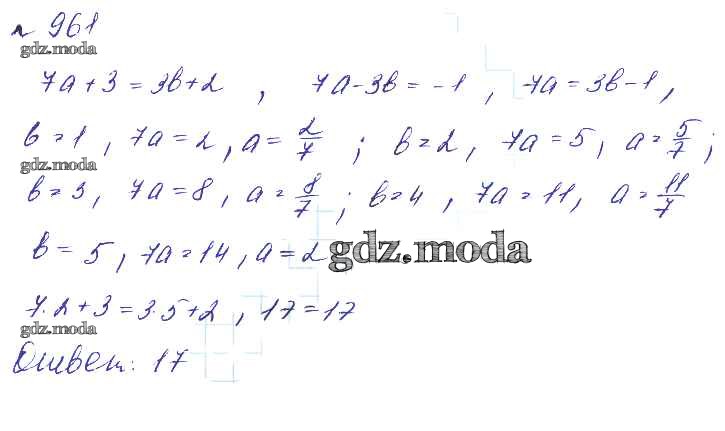 № 961
gdz.moda
7a + 3 = 3b + 2 , 7a - 3b = -1 , 7a = 3b - 1 ,
b = 1 , 7a = 2 , a = 2/7 ; b = 2 , 7a = 5 , a = 5/7 ;
gdz.moda
b = 3 , 7a = 8 , a = 8/7 ; b = 4 , 7a = 11 , a = 11/7
b = 5 , 7a = 14 , a = 2 gdz.moda
7·2 + 3 = 3·5 + 2 , 17 = 17
gdz.moda
Ответ: 17